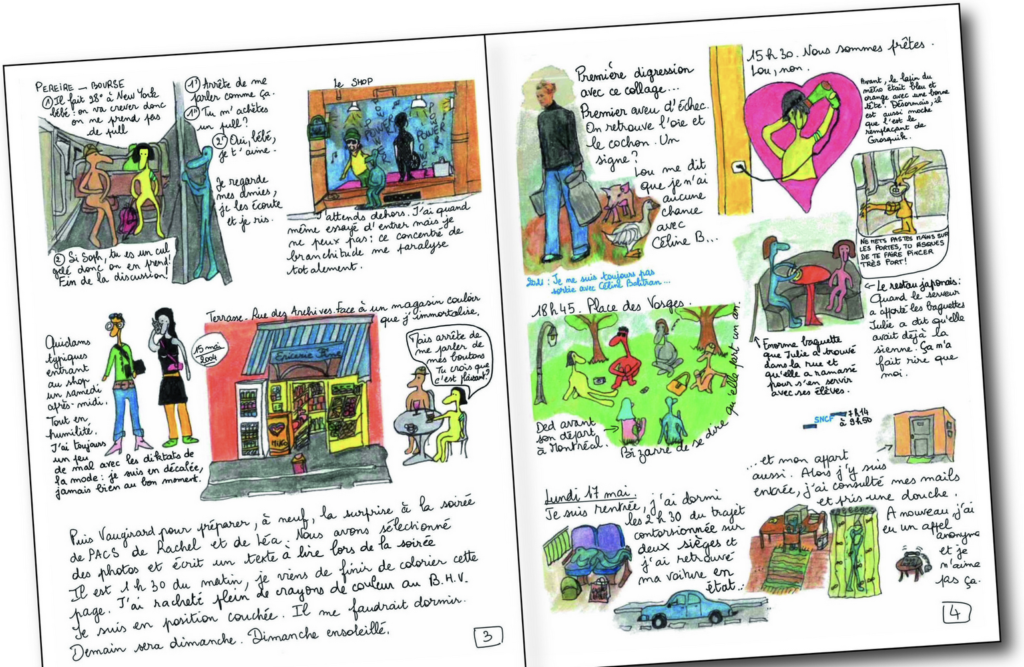 PEREIRE _ BOURSE
① Il fait 38° à New York
bébé! on va crever donc
on ne prend pas
de pull
1' Arrête de me
parler comme ça.
1'' Tu m'achètes
un pull?
2' Oui, bébé,
je t'aime.
Je regarde
mes amies,
je les écoute
et je ris.
② Si Soph, tu es un cul
gelé donc on en prend!
Fin de la discussion!
le SHOP
J'attends dehors. J'ai quand
même essayé d'entrer mais je
ne peux pas: ce concentré de
branchitude me paralyse
totalement.
Quidams
typiques
entrant
au shop
un samedi
après-midi.
Tout en
humilité.
J'ai toujours
un peu
de mal avec les diktats de
la mode: je suis en décalée,
jamais bien au bon moment.
Terrasse. Rue des Archives. Face à un magasin couleur
que j'immortalise.
15 mai
2004
Epicerie Fine
MIKO
Fais arrête de
me parler de
mes boutons
Tu crois que
c'est plaisant?
Puis Vaugirard pour préparer, à neuf, la surprise à la soirée
de PACS de Rachel et de Léa. Nous avons sélectionné
des photos et écrit un texte à lire lors de la soirée
Il est 1h30 du matin, je viens de finir de colorier cette
page. J'ai racheté plein de crayons de couleur au B.H.V.
Je suis en position couchée. Il me faudrait dormir.
Demain sera dimanche. Dimanche ensoleillé.
3
Première digression
avec ce collage...
Premier aveu d'Échec.
On retrouve l'oie et
le cochon. Un
signe?
Lou me dit
que je n'ai
aucune
chance
avec
Céline B...
2021: Je ne suis toujours pas
sortie avec Céline Balitran...
15h30. Nous sommes prêtes.
Lou, non.
Avant, le lapin du
métro était bleu et
orange avec une bonne
tête! Désormais, il
est aussi moche
que l'est le
remplaçant de
Grosquik.
NE METS PAS TES MAINS SUR
LES PORTES, TU RISQUES
DE TE FAIRE PINCER
TRÈS FORT!
Le restau japonais:
Quand le serveur
a apporté les baguettes
Julie a dit qu'elle
avait déjà la
sienne. Ça m'a
fait rire que
moi.
Enorme baguette
que Julie a trouvé
dans la rue et
qu'elle a ramassé
pour s'en servir
avec ses élèves.
18h45. Place des Vosges.
Ded avant
son départ
à Montréal.
Bizarre de se dire qu'elle part un an.
SNCF 7h14
à 9h50
... et mon appart
aussi. Alors j'y suis
entrée, j'ai consulté mes mails
et pris une douche.
A nouveau, j'ai
eu un appel
anonyme
et je
n'aime
pas ça.
Lundi 17 mai.
Je suis rentrée, j'ai dormi
les 2h30 du trajet
contorsionnée sur
deux sièges et
j'ai retrouvé
ma voiture en
état...
4